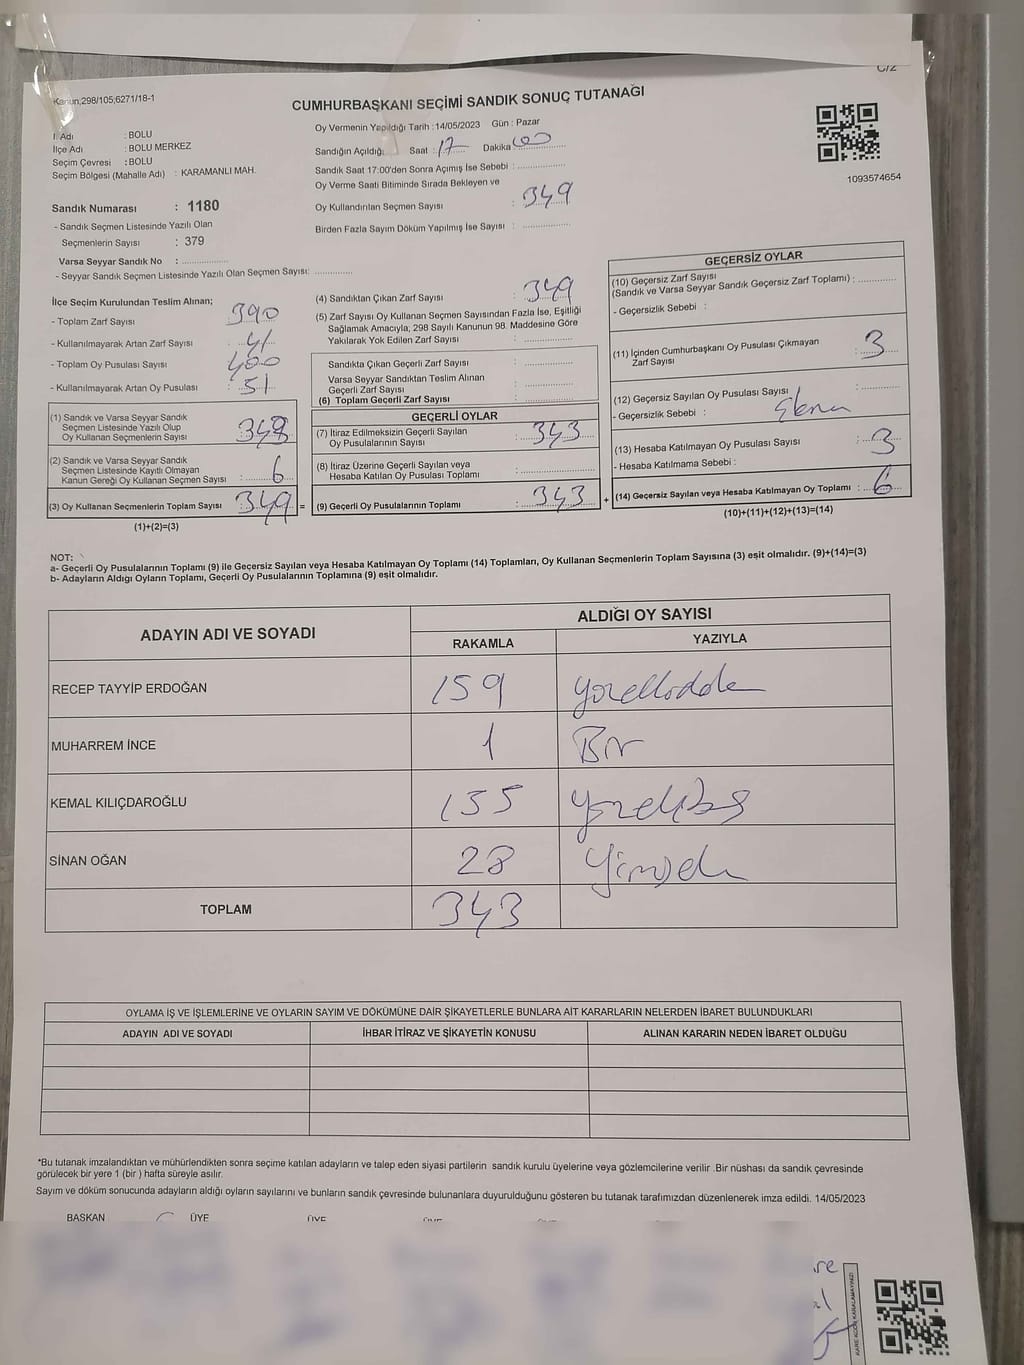 C/2
Kanun;298/105;6271/18-1
CUMHURBAŞKANI SEÇİMİ SANDIK SONUÇ TUTANAĞI
İl Adı : BOLU
İlçe Adı : BOLU MERKEZ
Seçim Çevresi : BOLU
Seçim Bölgesi (Mahalle Adı) : KARAMANLI MAH.
Oy Vermenin Yapıldığı Tarih :14/05/2023 Gün : Pazar
Sandığın Açıldığı; Saat : 17 Dakika 00
Sandık Saat 17:00'den Sonra Açımış İse Sebebi :
Oy Verme Saati Bitiminde Sırada Bekleyen ve
Oy Kullandırılan Seçmen Sayısı : 349
Birden Fazla Sayım Döküm Yapılmış İse Sayısı :
1093574654
Sandık Numarası : 1180
- Sandık Seçmen Listesinde Yazılı Olan
Seçmenlerin Sayısı : 379
Varsa Seyyar Sandık No :
- Seyyar Sandık Seçmen Listesinde Yazılı Olan Seçmen Sayısı:
İlçe Seçim Kurulundan Teslim Alınan;
- Toplam Zarf Sayısı : 390
- Kullanılmayarak Artan Zarf Sayısı : 41
- Toplam Oy Pusulası Sayısı : 400
- Kullanılmayarak Artan Oy Pusulası : 51
(1) Sandık ve Varsa Seyyar Sandık
Seçmen Listesinde Yazılı Olup
Oy Kullanan Seçmenlerin Sayısı
(2) Sandık ve Varsa Seyyar Sandık
Seçmen Listesinde Kayıtlı Olmayan
Kanun Gereği Oy Kullanan Seçmen Sayısı : 6
(3) Oy Kullanan Seçmenlerin Toplam Sayısı 349 =
(1)+(2)=(3)
(4) Sandıktan Çıkan Zarf Sayısı : 349
(5) Zarf Sayısı Oy Kullanan Seçmen Sayısından Fazla İse, Eşitliği
Sağlamak Amacıyla, 298 Sayılı Kanunun 98. Maddesine Göre
Yakılarak Yok Edilen Zarf Sayısı :
Sandıkta Çıkan Geçerli Zarf Sayısı :
Varsa Seyyar Sandıktan Teslim Alınan
Geçerli Zarf Sayısı :
(6) Toplam Geçerli Zarf Sayısı :
GEÇERLİ OYLAR
(7) İtiraz Edilmeksizin Geçerli Sayılan
Oy Pusulalarının Sayısı : 343
(8) İtiraz Üzerine Geçerli Sayılan veya
Hesaba Katılan Oy Pusulası Toplamı :
(9) Geçerli Oy Pusulalarının Toplamı : 343 +
GEÇERSİZ OYLAR
(10) Geçersiz Zarf Sayısı
(Sandık ve Varsa Seyyar Sandık Geçersiz Zarf Toplamı) :
- Geçersizlik Sebebi :
(11) İçinden Cumhurbaşkanı Oy Pusulası Çıkmayan
Zarf Sayısı : 3
(12) Geçersiz Sayılan Oy Pusulası Sayısı :
- Geçersizlik Sebebi :
(13) Hesaba Katılmayan Oy Pusulası Sayısı : 3
- Hesaba Katılmama Sebebi :
(14) Geçersiz Sayılan veya Hesaba Katılmayan Oy Toplamı : 6
(10)+(11)+(12)+(13)=(14)
NOT:
a- Geçerli Oy Pusulalarının Toplamı (9) ile Geçersiz Sayılan veya Hesaba Katılmayan Oy Toplamı (14) Toplamları, Oy Kullanan Seçmenlerin Toplam Sayısına (3) eşit olmalıdır. (9)+(14)=(3)
b- Adayların Aldığı Oyların Toplamı, Geçerli Oy Pusulalarının Toplamına (9) eşit olmalıdır.
ADAYIN ADI VE SOYADI
ALDIĞI OY SAYISI
RAKAMLA YAZIYLA
RECEP TAYYİP ERDOĞAN 159
MUHARREM İNCE 1 Bir
KEMAL KILIÇDAROĞLU 155
SİNAN OĞAN 28
TOPLAM 343
OYLAMA İŞ VE İŞLEMLERİNE VE OYLARIN SAYIM VE DÖKÜMÜNE DAİR ŞİKAYETLERLE BUNLARA AİT KARARLARIN NELERDEN İBARET BULUNDUKLARI
ADAYIN ADI VE SOYADI İHBAR İTİRAZ VE ŞİKAYETİN KONUSU ALINAN KARARIN NEDEN İBARET OLDUĞU
*Bu tutanak imzalandıktan ve mühürlendikten sonra seçime katılan adayların ve talep eden siyasi partilerin sandık kurulu üyelerine veya gözlemcilerine verilir .Bir nüshası da sandık çevresinde
görülecek bir yere 1 (bir ) hafta süreyle asılır.
Sayım ve döküm sonucunda adayların aldığı oyların sayılarını ve bunların sandık çevresinde bulunanlara duyurulduğunu gösteren bu tutanak tarafımızdan düzenlenerek imza edildi. 14/05/2023
BAŞKAN ÜYE ÜYE ÜYE